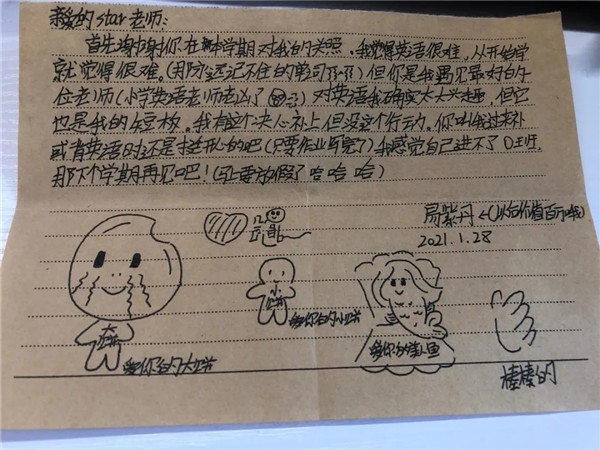 亲爱的star老师：
首先谢谢你在本学期对我的关照。我觉得英语很难，从开始学
就觉得很难。（那永远记不住的单词TvT）但你是我遇见最好的
位老师（小学英语老师老凶了）对英语我确实太大兴趣，但它
也是我的短板。我有这个决心补上但没这个行动。你叫我过来补
或背英语时还是挺开心的吧（只要作业写完了）我感觉自己进不了D班
那下个学期再见吧！（马上要放假了 哈哈哈）
易紫丹←（价值百万哦）
2021.1.28
小饼
大饼
爱你的小饼
爱你的大饼
爱你的美人鱼
棒棒的